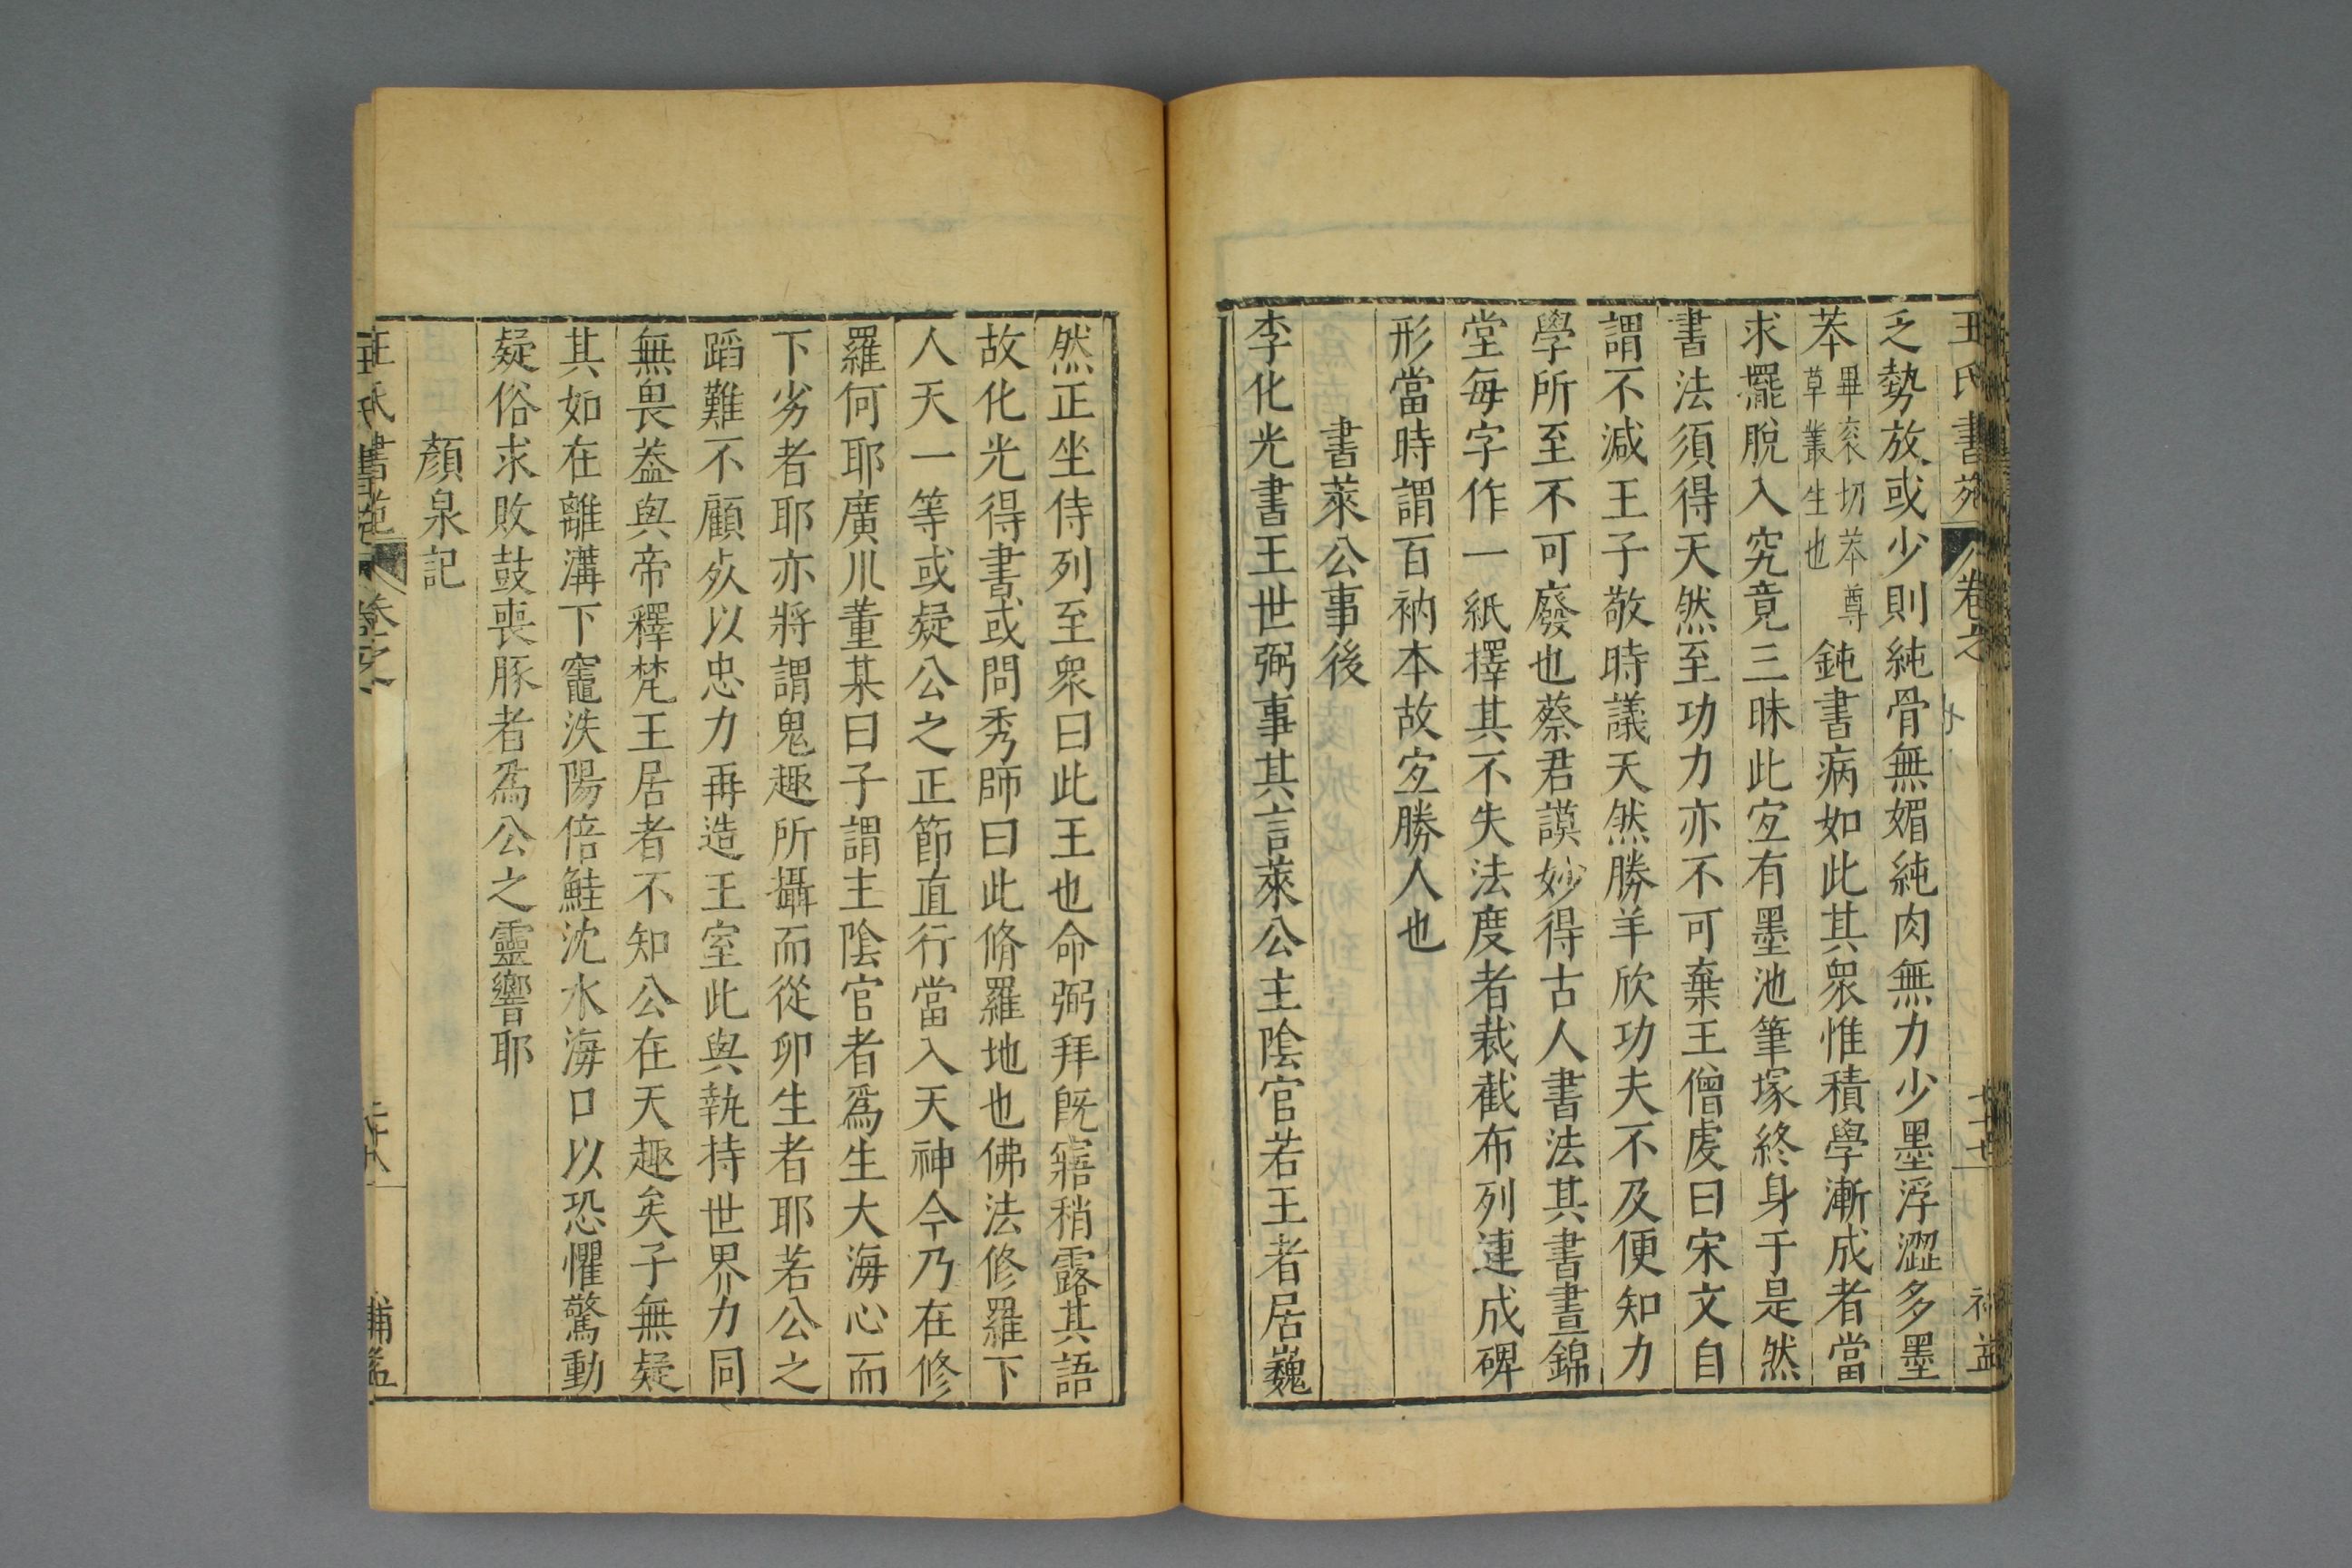 王氏書苑 卷之 七十七 補益
乏勢放或少則純骨無媚純肉無力少墨浮澀多墨
苯畢衮切苯䔿草叢生也鈍書病如此其衆惟積學漸成者當
求擺脫入究竟三昧此㝎有墨池筆塚終身于是然
書法須得天然至功力亦不可棄王僧虔曰宋文自
謂不減王子敬時議天然勝羊欣功夫不及便知力
學所至不可廢也蔡君謨妙得古人書法其書晝錦
堂每字作一紙擇其不失法度者裁截布列連成碑
形當時謂百衲本故㝎勝人也
書萊公事後
李化光書王世弼事其言萊公主陰官若王者居巍
然正坐侍列至衆曰此王也命弼拜旣寤稍露其語
故化光得書或問秀師曰此脩羅地也佛法修羅下
人天一等或疑公之正節直行當入天神今乃在修
羅何耶廣川董某曰子謂主陰官者爲生大海心而
下劣者耶亦將謂鬼趣所攝而從卵生者耶若公之
蹈難不顧㱠以忠力再造王室此與執持世界力同
無畏葢與帝釋梵王居者不知公在天趣矣子無疑
其如在離溝下竈泆陽倍鮭沈水海口以恐懼驚動
疑俗求敗鼓喪豚者爲公之靈響耶
顏泉記
王氏書苑 卷之 七十八 補益